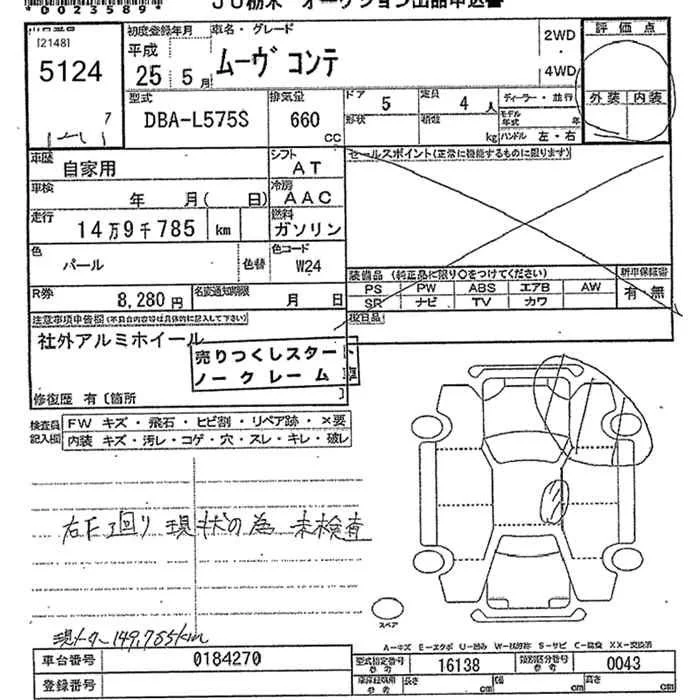 *0023589*
JU栃木 オークション出品申込書
[2148]
5124
7
初度登録年月
平成
25 年 5 月
車名・グレード
ムーヴ コンテ
2WD
・
4WD
評価点
外装 内装
型式
DBA-L575S
排気量
660 CC
ドア 5
定員 4 人
形状
積載 kg
ディーラー・並行
モデル年式 年
ハンドル 左・右
車歴
自家用
シフト
AT
セールスポイント(正常に機能するものに限ります)
車検
年 月( 日)
冷房
AAC
走行
14万9千785 km
燃料
ガソリン
色
パール
色替
色コード
W24
装備品 (純正品に限り○をつけてください)
PS PW ABS エアB AW
SR ナビ TV カワ
新車保証書
有・無
R券
8,280 円
名変通知期限
月 日
注意事項申告欄(不具合内容等は具体的に記入して下さい)
社外アルミホイール
売りつくしスタート
ノークレーム 車
欠品
修復歴 有〔箇所 〕
検査員記入欄
FW キズ・飛石・ヒビ割・リペア跡・×要
内装 キズ・汚レ・コゲ・穴・スレ・キレ・破レ
右F廻り 現状の為 未検査
現メーター149,785km
スペア
A-キズ E-エクボ U-凹み W-板金跡 S-サビ C-腐食 XX-交換済
車台番号 0184270
型式指定番号 参考 16138
類別区分番号 参考 0043
登録番号
長さ cm
幅 cm
高さ cm